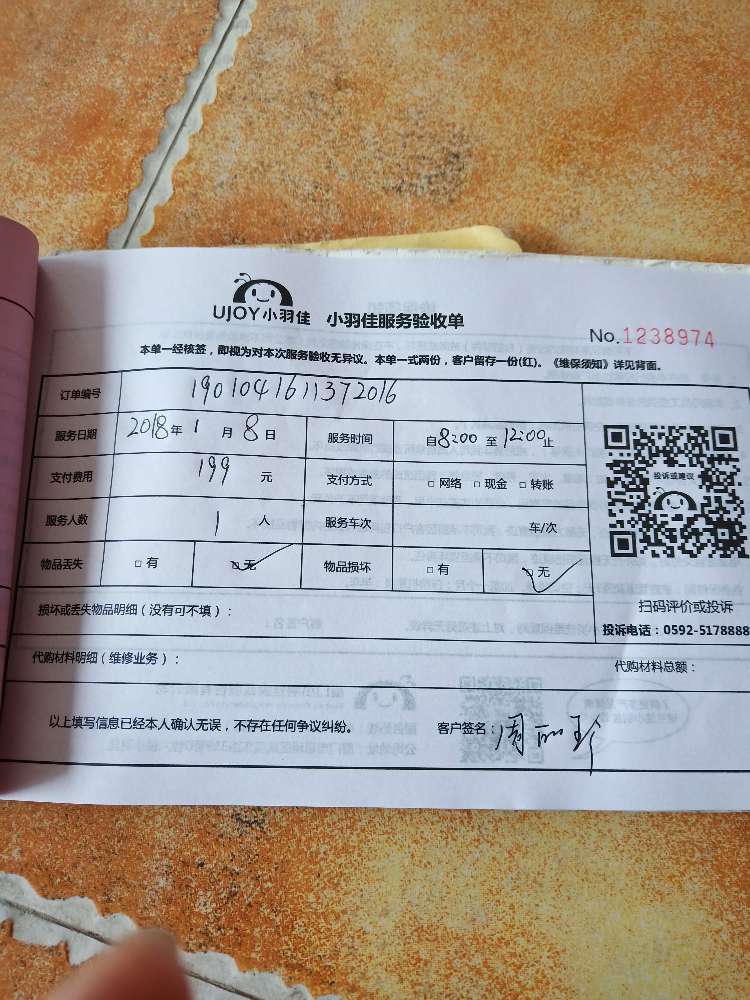 UJOY小羽佳 小羽佳服务验收单
No.1238974
本单一经核签，即视为对本次服务验收无异议。本单一式两份，客户留存一份(红)。《维保须知》详见背面。
订单编号 1901041611372016
服务日期 2018年1月8日 服务时间 自8:00至12:00止
支付费用 199 元 支付方式 □网络 □现金 □转账
投诉或建议
服务人数 1 人 服务车次 车/次
物品丢失 □有 □无 物品损坏 □有 □无
扫码评价或投诉
损坏或丢失物品明细（没有可不填）：
投诉电话：0592-5178888
代购材料明细（维修业务）：
代购材料总额：
以上填写信息已经本人确认无误，不存在任何争议纠纷。 客户签名：周丽珍